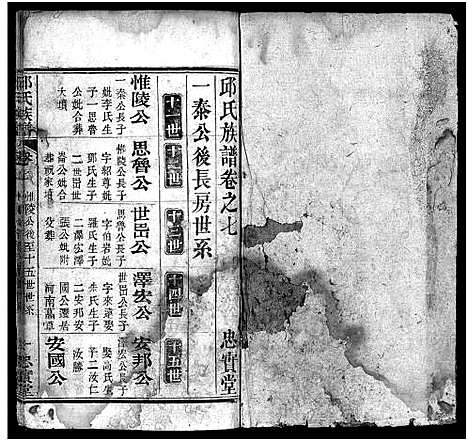 邱氏族譜卷之七
忠實堂
一秦公後長房世系
十一世
十二世
十三世
十四世
十五世
惟陵公
一秦公長子
妣李氏生
子一思魯
公妣合葬
大墳
思魯公
惟陵公長子
字紹尊妣
鄧氏生子
二世
公妣合
世岊公
思魯公長子
字伯岩妣
羅氏生子
二澤宏澤
張公妣附
澤宏公
世岊公長子
字來遠娶
朱氏生子
二安邦安
國公遷居
河南
安邦公
澤宏公長子
娶高氏生
子二汝仁
汝勝
安國公
邱氏族譜
陵公後至十五世世系
忠實堂